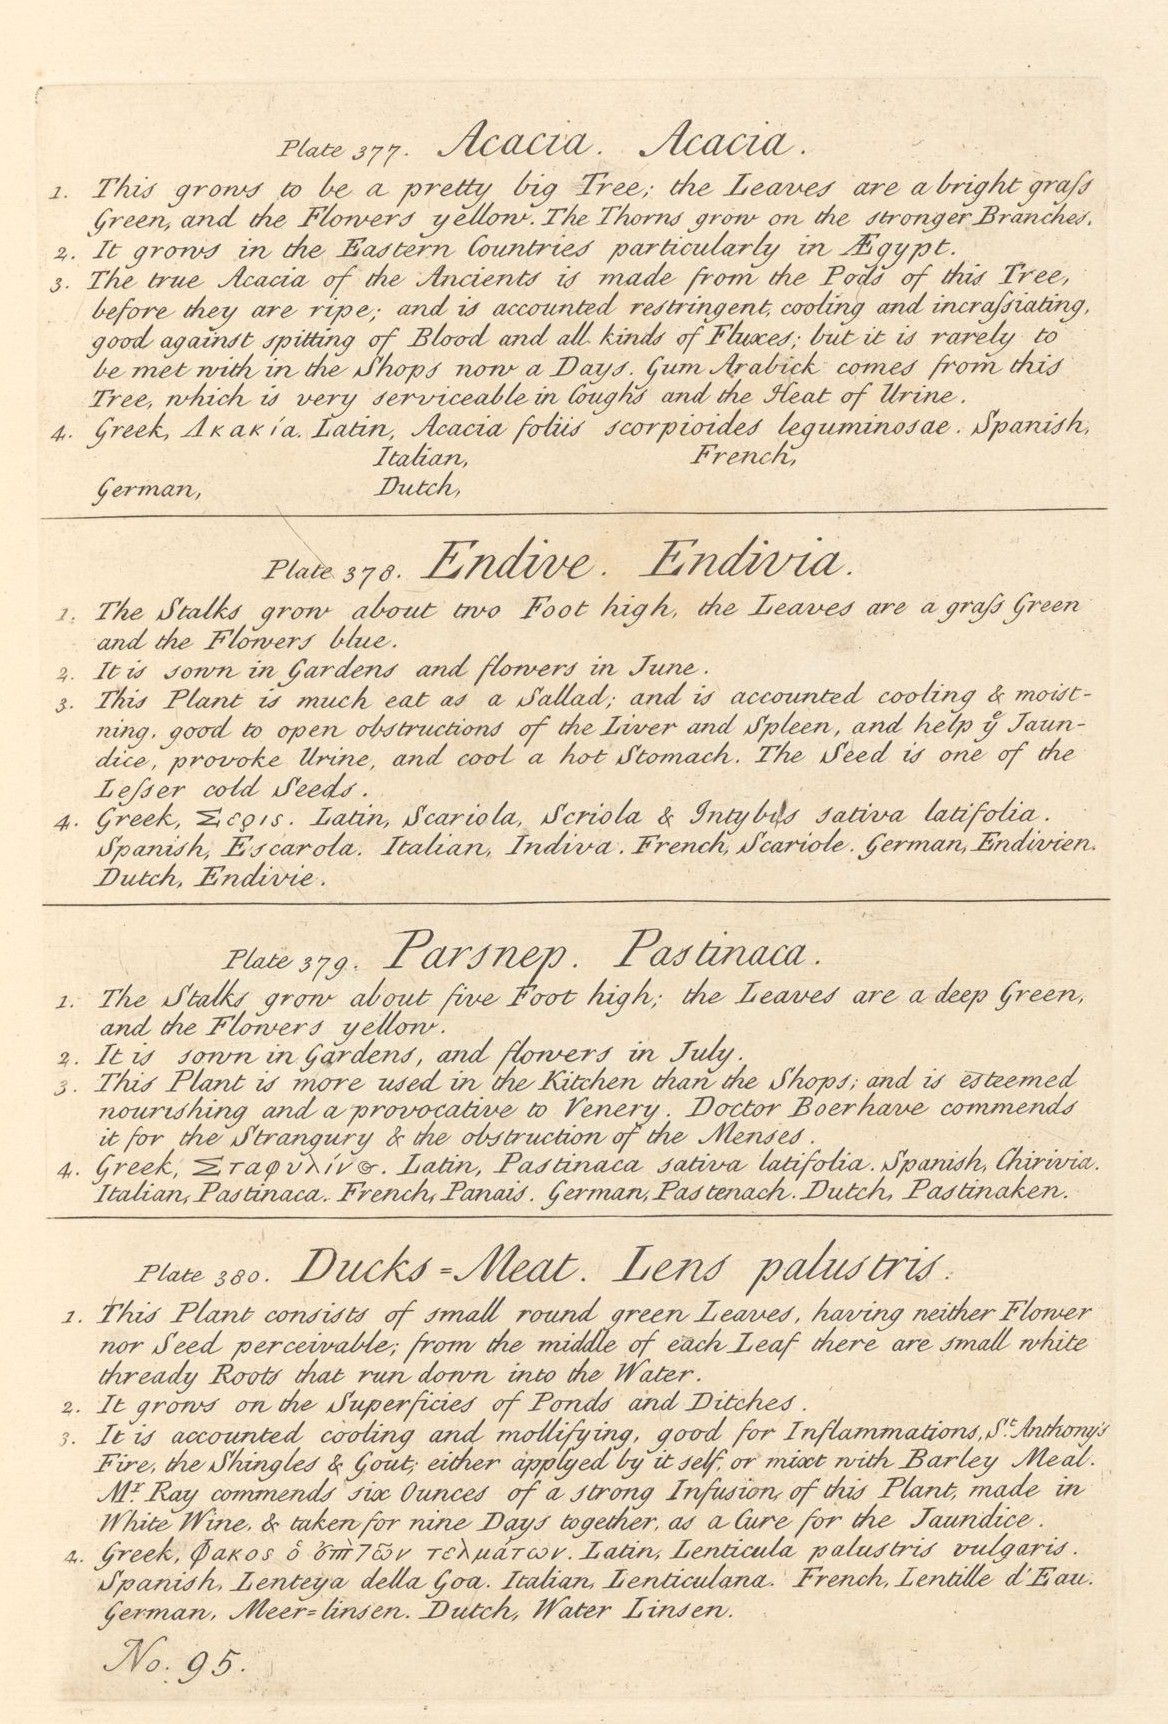 Plate 377. Acacia. Acacia.
1. This grows to be a pretty big Tree; the Leaves are a bright graſs
Green, and the Flowers yellow. The Thorns grow on the stronger Branches.
2. It grows in the Eastern Countries particularly in Ægypt.
3. The true Acacia of the Ancients is made from the Pods of this Tree,
before they are ripe; and is accounted restringent, cooling and incraſsiating,
good against spitting of Blood and all kinds of Fluxes; but it is rarely to
be met with in the Shops now a Days. Gum Arabick comes from this
Tree, which is very serviceable in Coughs and the Heat of Urine.
4. Greek, Ακακία. Latin, Acacia foliis scorpioides leguminosae. Spanish,
Italian, French,
German, Dutch,
Plate 378. Endive. Endivia.
1. The Stalks grow about two Foot high, the Leaves are a graſs Green
and the Flowers blue.
2. It is sown in Gardens and flowers in June.
3. This Plant is much eat as a Sallad; and is accounted cooling & moist-
ning, good to open obstructions of the Liver and Spleen, and help yͤ Jaun-
dice, provoke Urine, and cool a hot Stomach. The Seed is one of the
Leſser cold Seeds.
4. Greek, Σερις. Latin, Scariola, Scriola & Intybus sativa latifolia.
Spanish, Escarola. Italian, Indiva. French, Scariole. German, Endivien.
Dutch, Endivie.
Plate 379. Parsnep. Pastinaca.
1. The Stalks grow about five Foot high; the Leaves are a deep Green,
and the Flowers yellow.
2. It is sown in Gardens, and flowers in July.
3. This Plant is more used in the Kitchen than the Shops; and is esteemed
nourishing and a provocative to Venery. Doctor Boerhave commends
it for the Strangury & the obstruction of the Menses.
4. Greek, Σταφυλίνος. Latin, Pastinaca sativa latifolia. Spanish, Chirivia.
Italian, Pastinaca. French, Panais. German, Pastenach. Dutch, Pastinaken.
Plate 380. Ducks=Meat. Lens palustris.
1. This Plant consists of small round green Leaves, having neither Flower
nor Seed perceivable; from the middle of each Leaf there are small white
thready Roots that run down into the Water.
2. It grows on the Superficies of Ponds and Ditches.
3. It is accounted cooling and mollifying, good for Inflammations, Sᵗ Anthony's
Fire, the Shingles & Gout; either applyed by it self, or mixt with Barley Meal.
Mʳ Ray commends six Ounces of a strong Infusion, of this Plant, made in
White Wine, & taken for nine Days together, as a Cure for the Jaundice.
4. Greek, Φακος ὁ ἐπὶ τῶν τελμάτων. Latin, Lenticula palustris vulgaris.
Spanish, Lenteya della Goa. Italian, Lenticulana. French, Lentille d'Eau.
German, Meer=linsen. Dutch, Water Linsen.
No. 95.